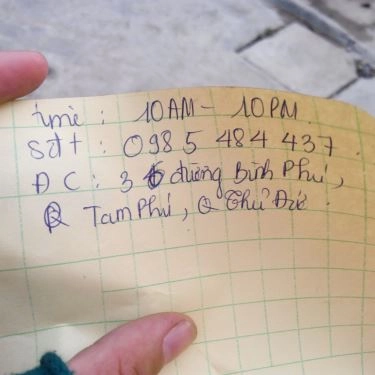 time : 10AM - 10PM.
Sđt : 0985 484 437.
ĐC : 36 đường Bình Phú,
Tam Phú, Q Thủ Đức.